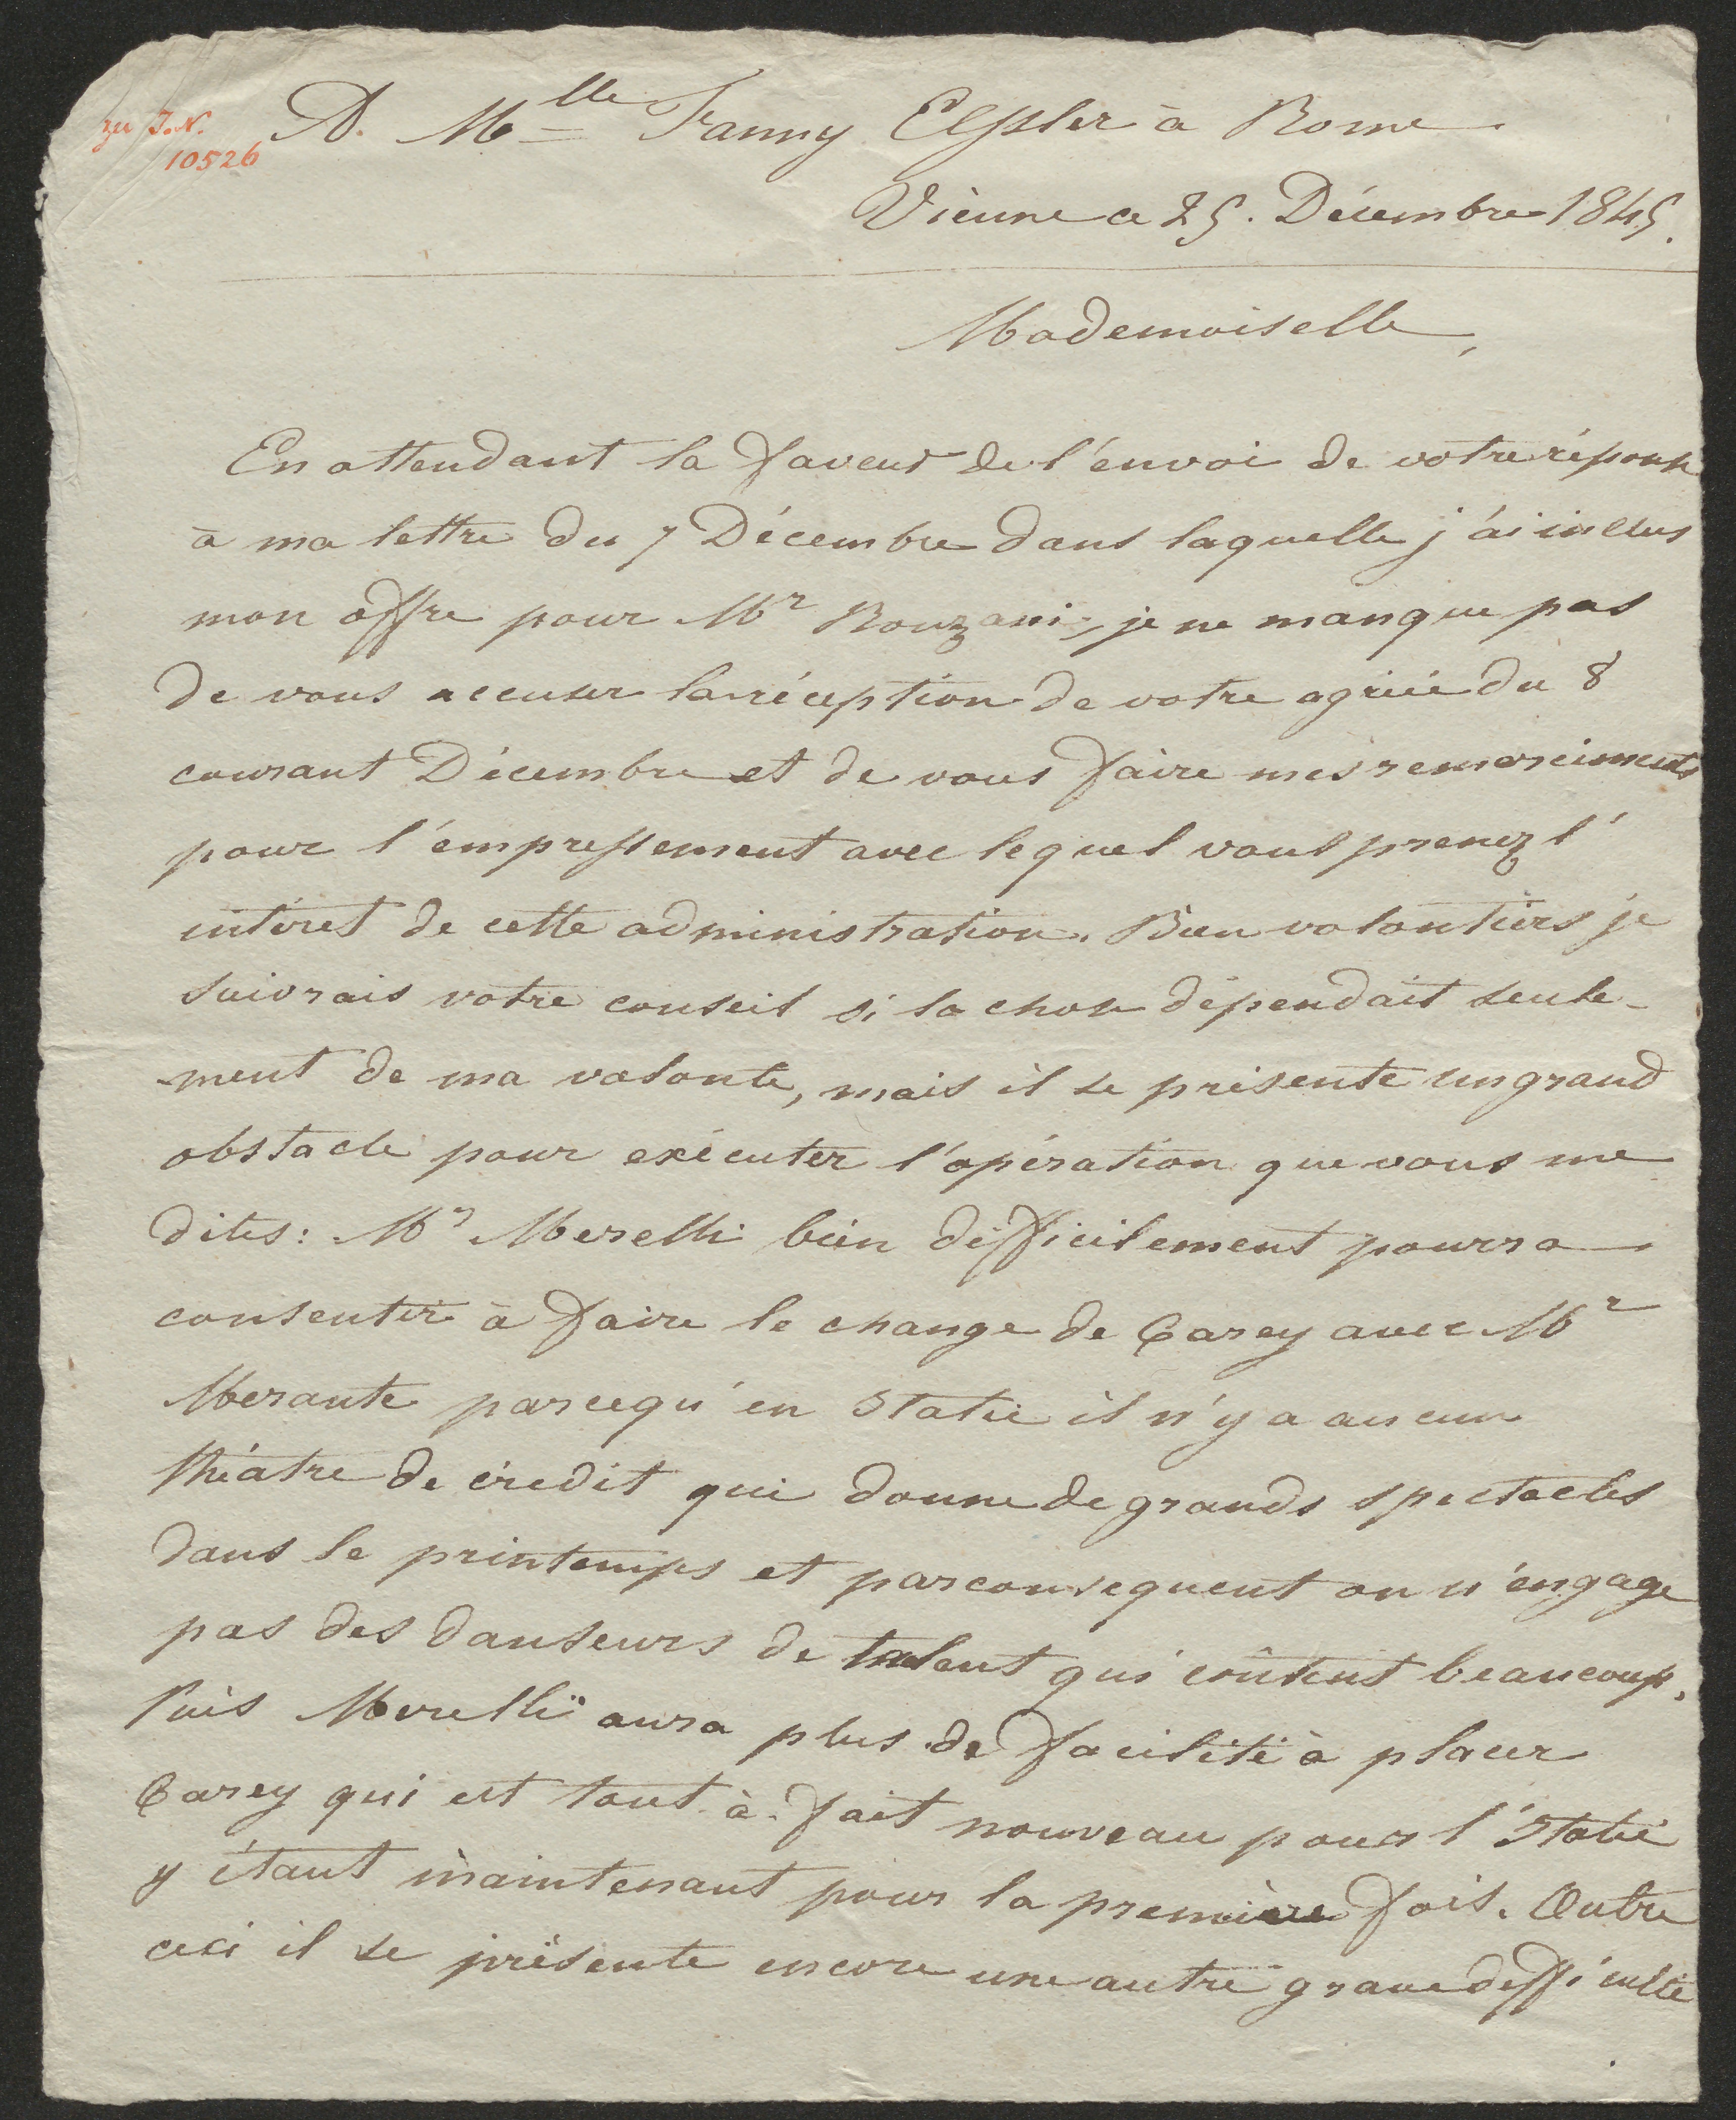 zu I.N.
10526
A. Mlle Fanny Elssler à Rome
Vienne ce 25. Décembre 1845.
Mademoiselle,
En attendant la faveur de l'envoi de votre réponse
à ma lettre du 7 Décembre dans laquelle j'ai inclus
mon offre pour Mr Ronzani, je ne manque pas
de vous accuser la réception de votre agréée du 8
courant Décembre et de vous faire mes remerciments
pour l'empressement avec lequel vous prenez l'
intéret de cette administration. Bien volontiers je
suivrais votre conseil si la chose dépendait seule-
-ment de ma volonte, mais il se présente un grand
obstacle pour exécuter l'opération que vous me
dites: Mr Merelli bien difficilement pourra
consentir à faire le change de Carey avec Mr
Merante parcequ'en Italie il n'y a aucun
théatre de crédit qui donne de grands spectacles
dans le printemps et parconsequent on n'engage
pas des danseurs de talent qui coûtent beaucoup.
Puis Merelli aura plus de facilité à placer
Carey qui est tout à fait nouveau pour l'Italie
y étant maintenant pour la première fois. Outre
ceci il se présente encore une autre grave difficulté